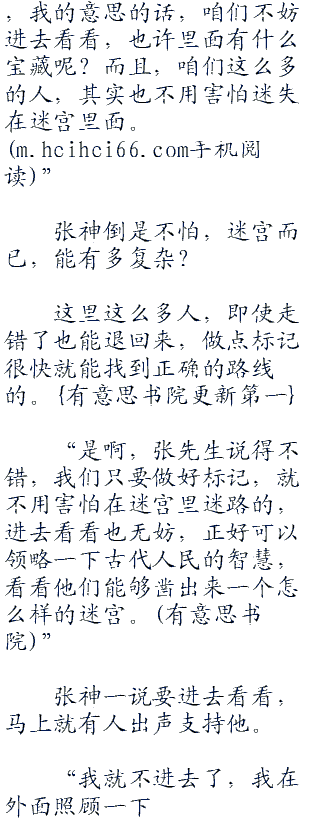 ，我的意思的话，咱们不妨
进去看看，也许里面有什么
宝藏呢？而且，咱们这么多
的人，其实也不用害怕迷失
在迷宫里面。
(m.hcihci66.com手机阅
读)”
张神倒是不怕，迷宫而
已，能有多复杂？
这里这么多人，即使走
错了也能退回来，做点标记
很快就能找到正确的路线
的。{有意思书院更新第一}
“是啊，张先生说得不
错，我们只要做好标记，就
不用害怕在迷宫里迷路的，
进去看看也无妨，正好可以
领略一下古代人民的智慧，
看看他们能够凿出来一个怎
么样的迷宫。(有意思书
院)”
张神一说要进去看看，
马上就有人出声支持他。
“我就不进去了，我在
外面照顾一下